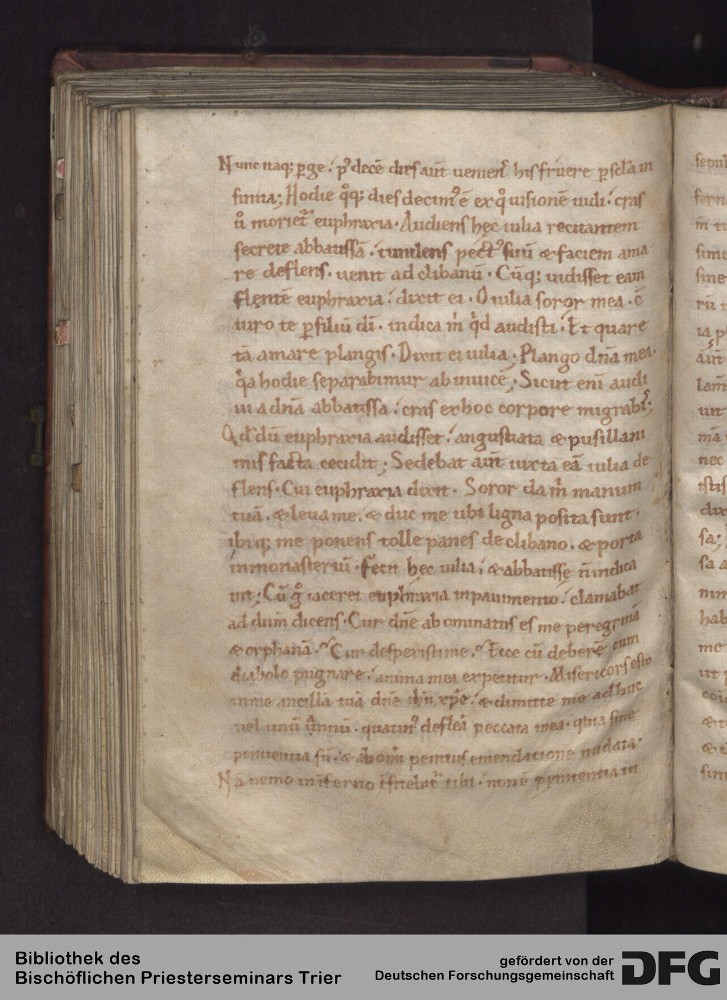 Nunc itaq; ꝑge. p' decē dies aut̄ uenient his fruere ꝑ scl̄a in
finita; Hodie q̊q; dies decim' ē ex q̊ uisionē uidi. cras
ů moriet̄ euphraxia. Audiens hęc iulia recitantem
secrete abbatissā. tundens pect' suū & faciem ama
re deflens. uenit ad clibanū. Cūq; uidisset eam
flentē euphraxia. dixit ei. O iulia soror mea.
iuro te ꝑ filiū dī. indica m̄ q̊d audisti. Et quare
tā amare plangis. Dixit ei iulia. Plango dn̄a mea.
q̊a hodie separabimur ab inuicē. Sicut eni audi
ui a dn̄a abbatissa. cras ex hoc corpore migrabis;
Qd̄ dū euphraxia audisset. angustiata & pusillani
mis facta cecidit; Sedebat aut̄ iuxta eā iulia de
flens. Cui euphraxia dixit. Soror da m̄ manum
tuā. & leua me. & duc me ubi ligna posita sunt.
ibiq; me ponens tolle panes de clibano. & porta
in monasteriū. Fecit hęc iulia. & abbatisse n̄ indica
uit; Cū g̊ iaceret euphraxia in pauimento. clamabat
ad dnm̄ dicens. Cur dn̄e abominatus es me peregrinā
& orphanā. Cur despexisti me. Ecce cū deberē cum
diabolo pugnare. anima mea expetitur. Misericors esto
in me ancillā tuā dn̄e ih̄u xp̄e. & dimitte me adhuc
uel unū annū. quatin' defleā peccata mea. quia sine
penitentia sū. & ab om̄i penitus emendatione nudata.
Na nemo in inferno c̄fitebit̄ tibi. non ē pęnitentia in
sepul
Bibliothek des
Bischöflichen Priesterseminars Trier
gefördert von der
Deutschen Forschungsgemeinschaft
DFG